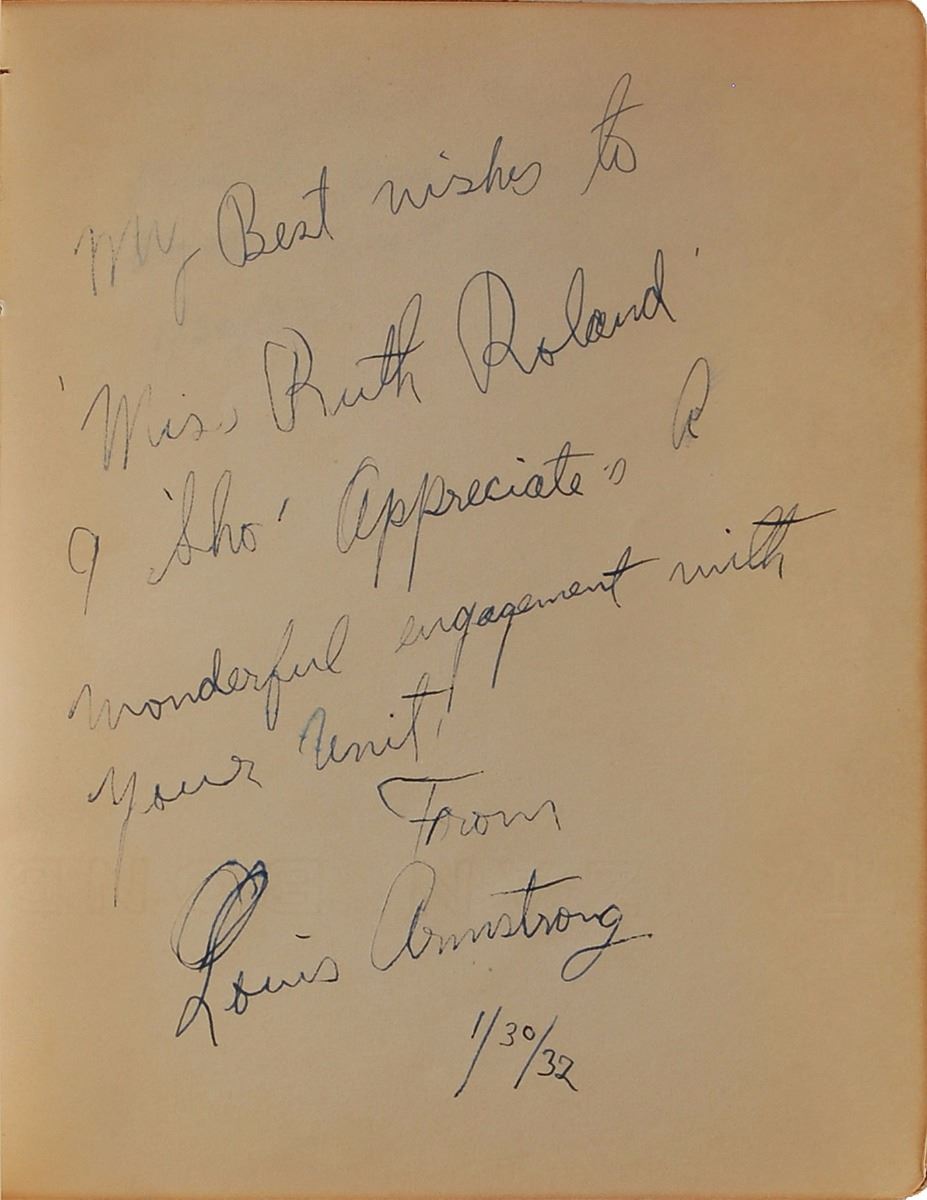 My Best wishes to
'Miss Ruth Roland'
I 'Sho' Appreciate's A
wonderful engagement with
Your Unit!
From
Louis Armstrong
1/30/32